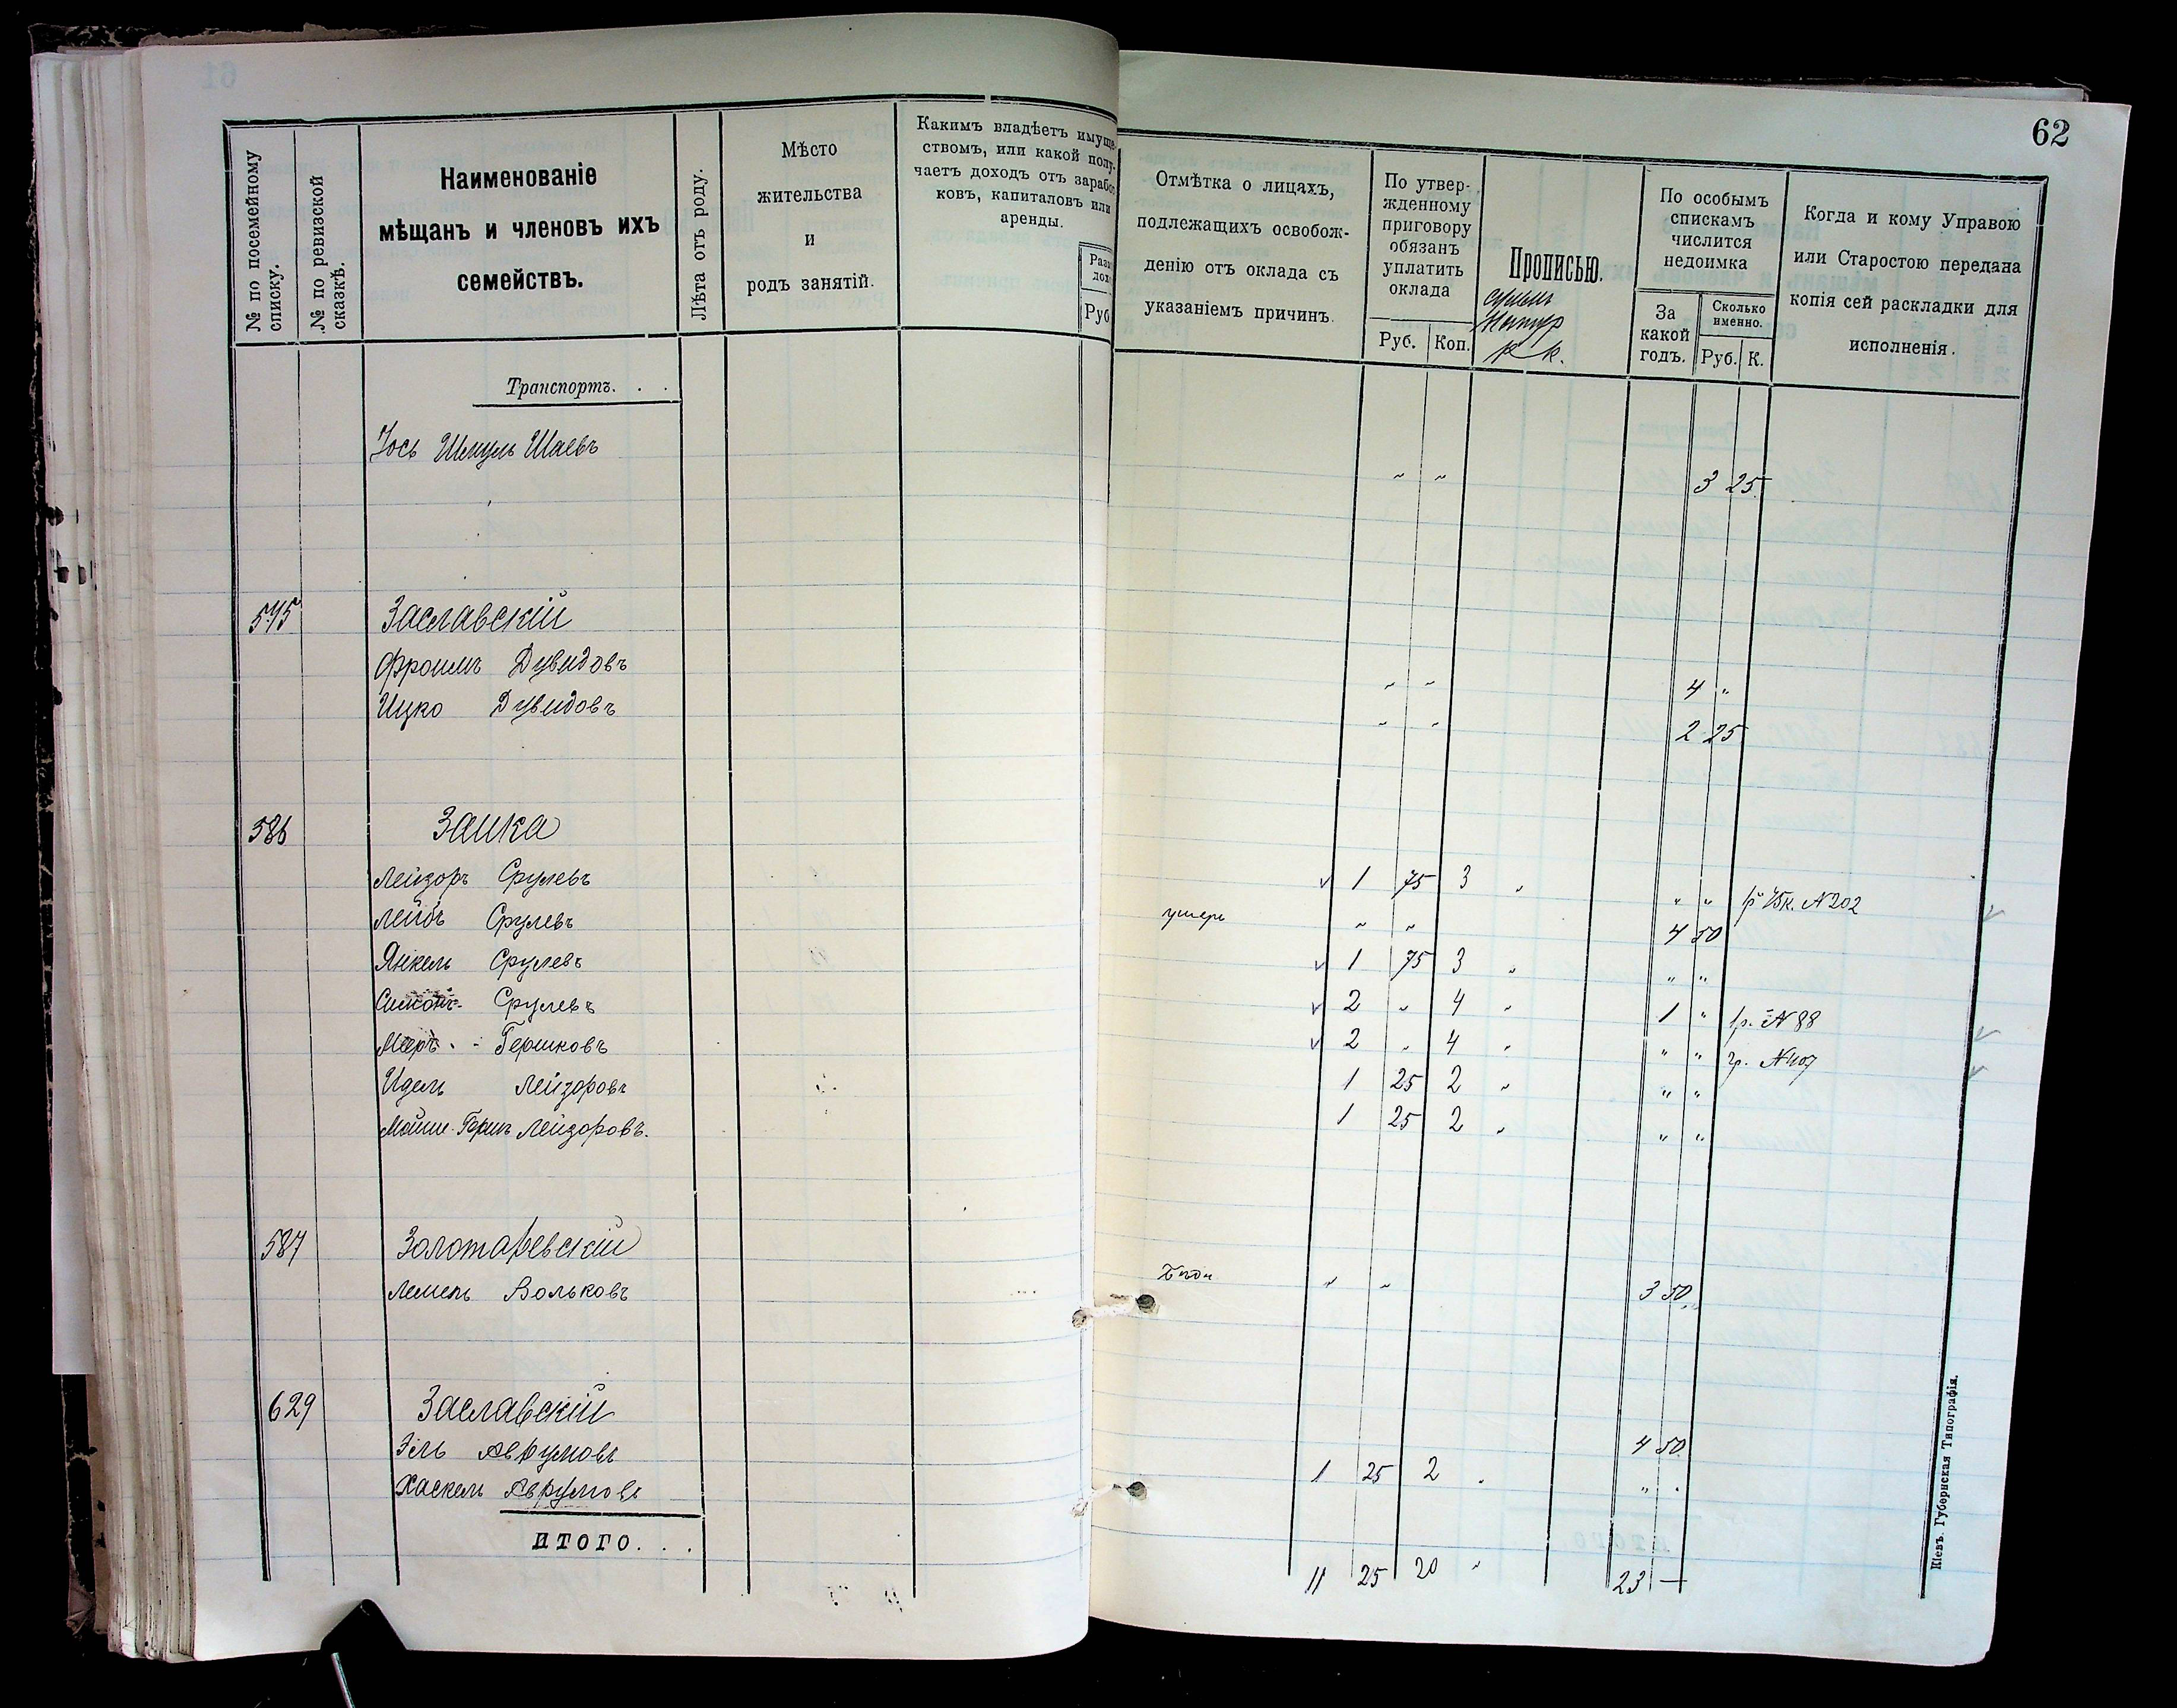 62
№ по посемейному списку.
№ по ревизской сказкѣ.
Наименованіе
мѣщанъ и членовъ ихъ
семействъ.
Лѣта отъ роду.
Мѣсто
жительства
и
родъ занятій.
Какимъ владѣетъ имуще-
ствомъ, или какой полу-
чаетъ доходъ отъ заработ
ковъ, капиталовъ или
аренды.
Руб
Отмѣтка о лицахъ,
подлежащихъ освобож-
денію отъ оклада съ
указаніемъ причинъ.
По утвер-
жденному
приговору
обязанъ
уплатить
оклада
Руб. Коп.
Прописью.
р к.
По особымъ
спискамъ
числится
недоимка
За
какой
годъ.
Сколько
именно.
Руб. К.
Когда и кому Управою
или Старостою передана
копія сей раскладки для
исполненія.
Транспортъ. . .
Іось Шмуль Шаевъ " " 3 25
545 Заславскій
Фроимъ Дувидовъ " " 4 "
Ицко Дувидовъ " " 2 25
586 Заика
Лейзоръ Срулевъ 1 75 3 " " " 1р 75к. №202
Лейбъ Срулевъ умеръ " " 4 50
Янкель Срулевъ 1 75 3 " " "
Симонъ Срулевъ 2 " 4 " 1 " 1р. №88
Мееръ Гершковъ 2 " 4 " " " 2р. №407
Идель Лейзоровъ 1 25 2 " " "
Мойше Гершъ Лейзоровъ. 1 25 2 " " "
587 Золотаревскій
Лемель Вольковъ " " 3 50
629 Заславскій
Эль Аврумовъ 4 50
Хаскель Аврумовъ 1 25 2 " " "
ИТОГО. . . 11 25 20 " 23 —
Кіевъ. Губернская Типографія.